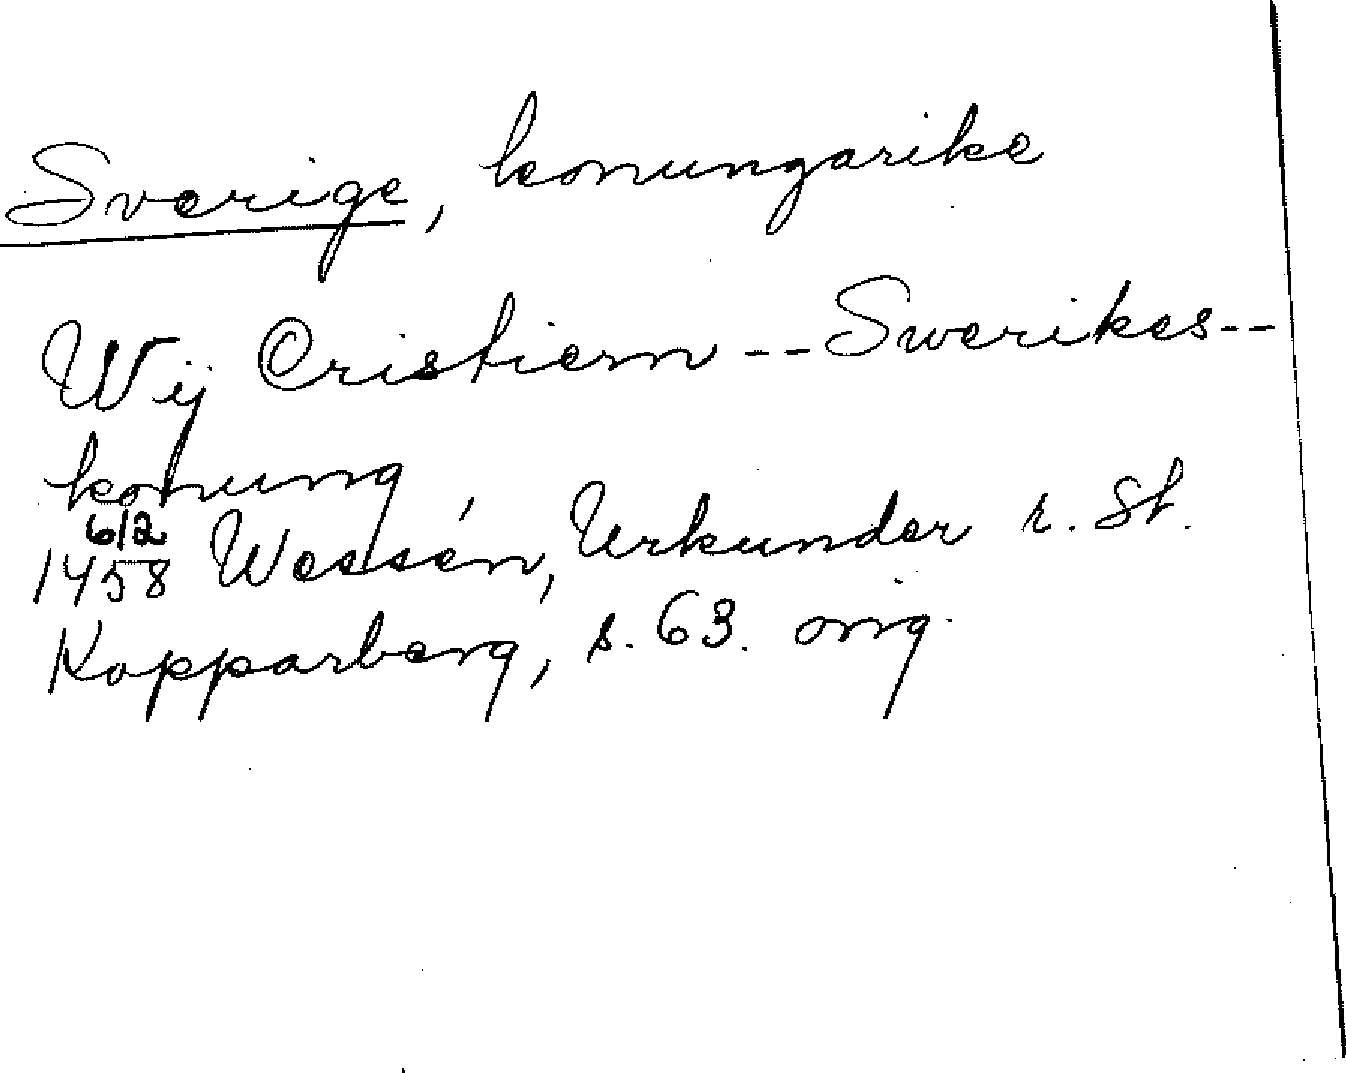 Sverige, konungarike
Wij Cristiern -- Swerikes --
konung,
6/2
1458 Wessén, Urkunder r. St.
Kopparberg, s. 63. orig.